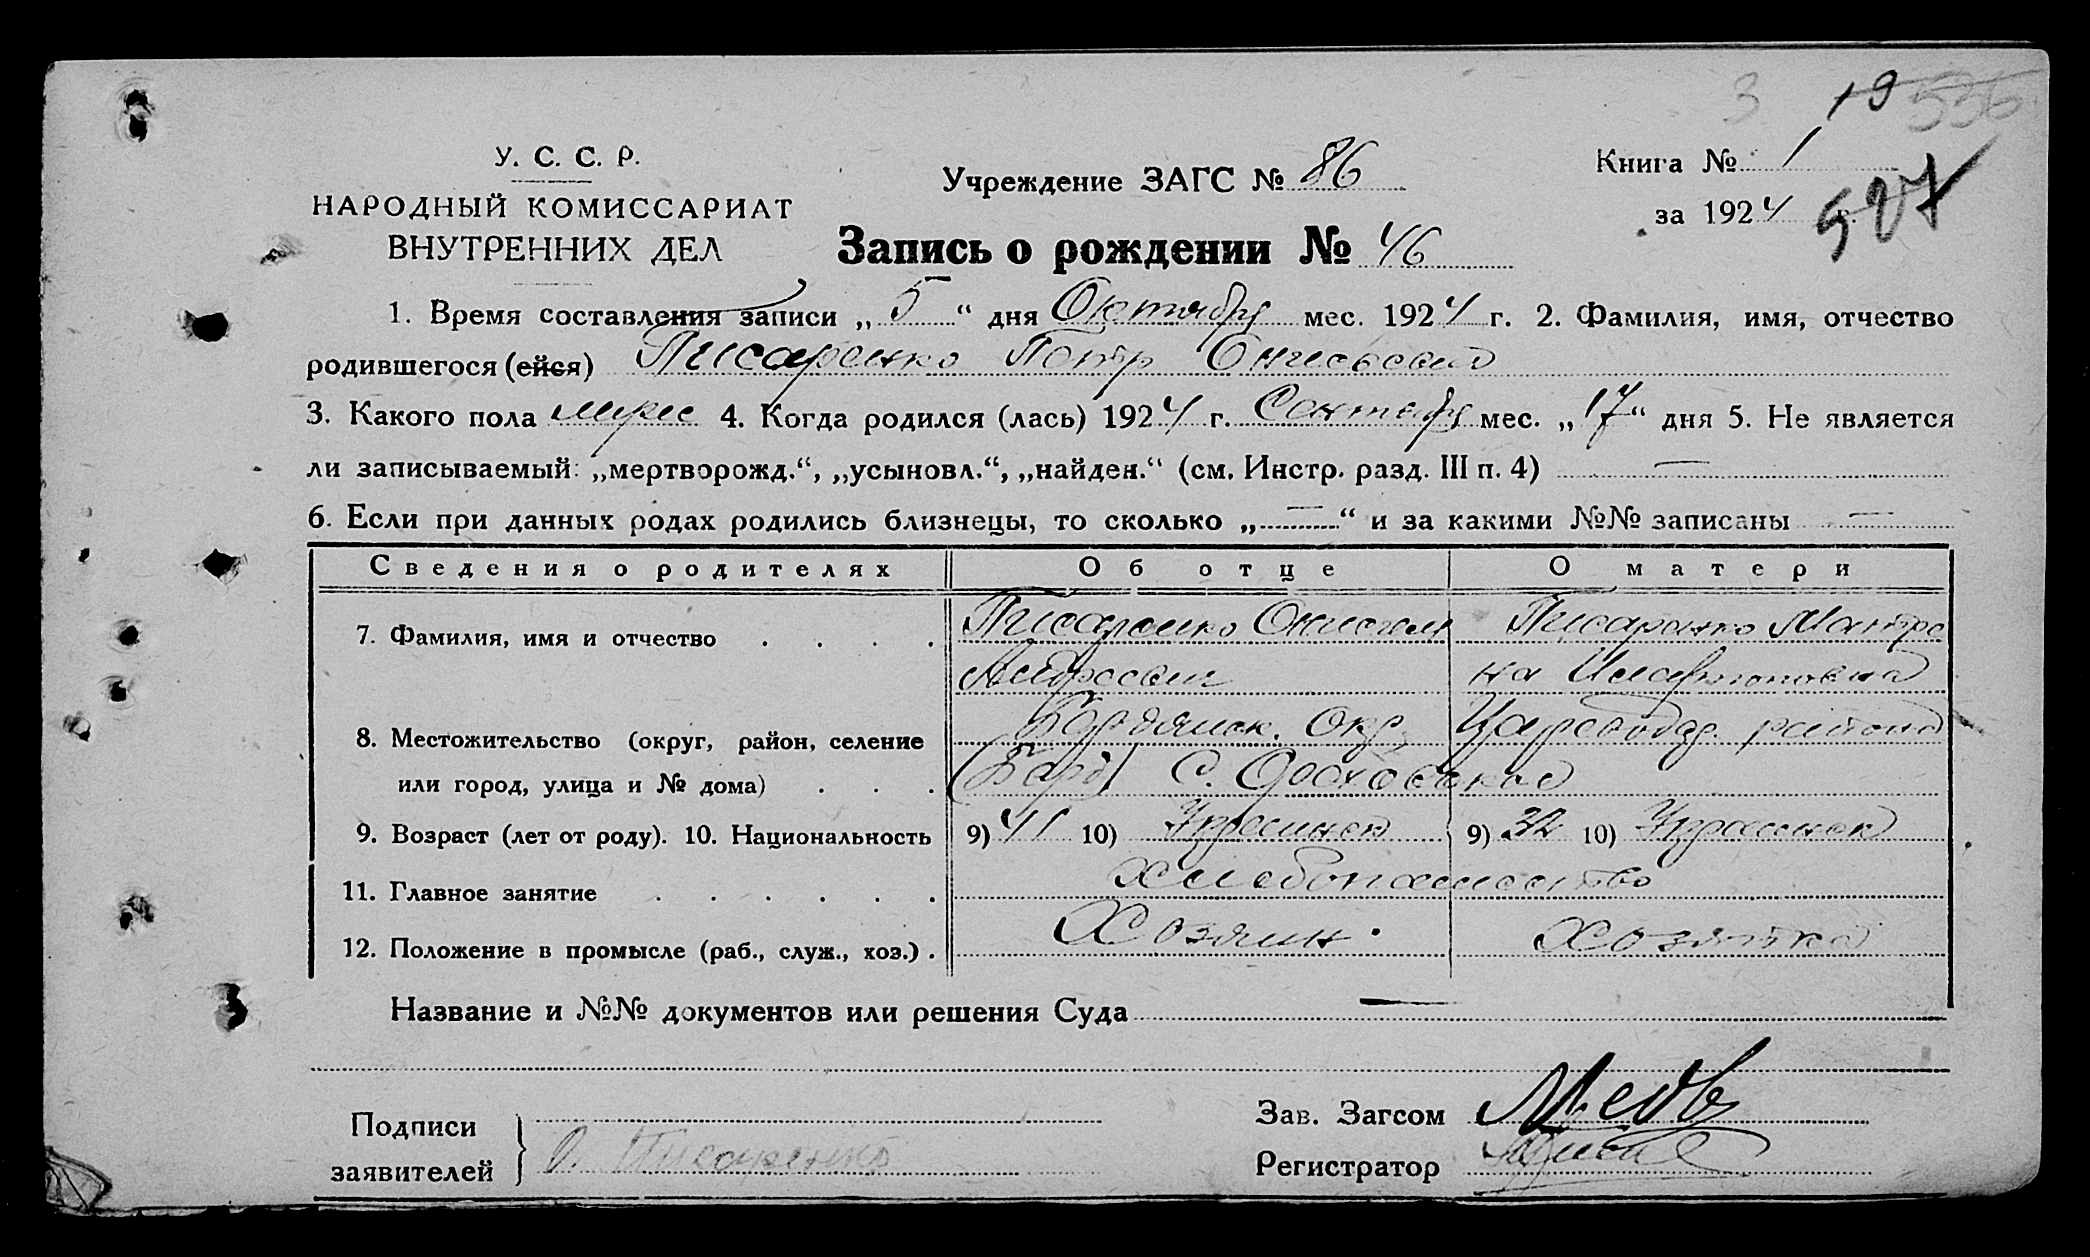 3 19 556
У. С. С. Р.
Учреждение ЗАГС № 86
Книга № 1
НАРОДНЫЙ КОМИССАРИАТ
за 1924 г. 527
ВНУТРЕННИХ ДЕЛ
Запись о рождении № 46
1. Время составления записи „5“ дня Октября мес. 1924 г. 2. Фамилия, имя, отчество
родившегося (ейся) Писаренко Петр
3. Какого пола 4. Когда родился (лась) 1924 г. Сентября мес. „17“ дня 5. Не является
ли записываемый: „мертворожд.“, „усыновл.“, „найден.“ (см. Инстр. разд. III п. 4) —
6. Если при данных родах родились близнецы, то сколько „—“ и за какими №№ записаны —
Сведения о родителях Об отце О матери
7. Фамилия, имя и отчество . . . . Писаренко Писаренко Мотро
на
8. Местожительство (округ, район, селение Бердянск. Окр. района
или город, улица и № дома) . . . С.
9. Возраст (лет от роду). 10. Национальность 9) 41 10) 9) 32 10)
11. Главное занятие . . . . . . Хлебопашество
12. Положение в промысле (раб., служ., хоз.) . Хозяин. Хозяйка
Название и №№ документов или решения Суда —
Подписи
заявителей О. Писаренко
Зав. Загсом
Регистратор